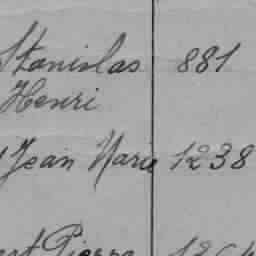 Stanislas 881
Henri
Jean Marie 1238
Pierre